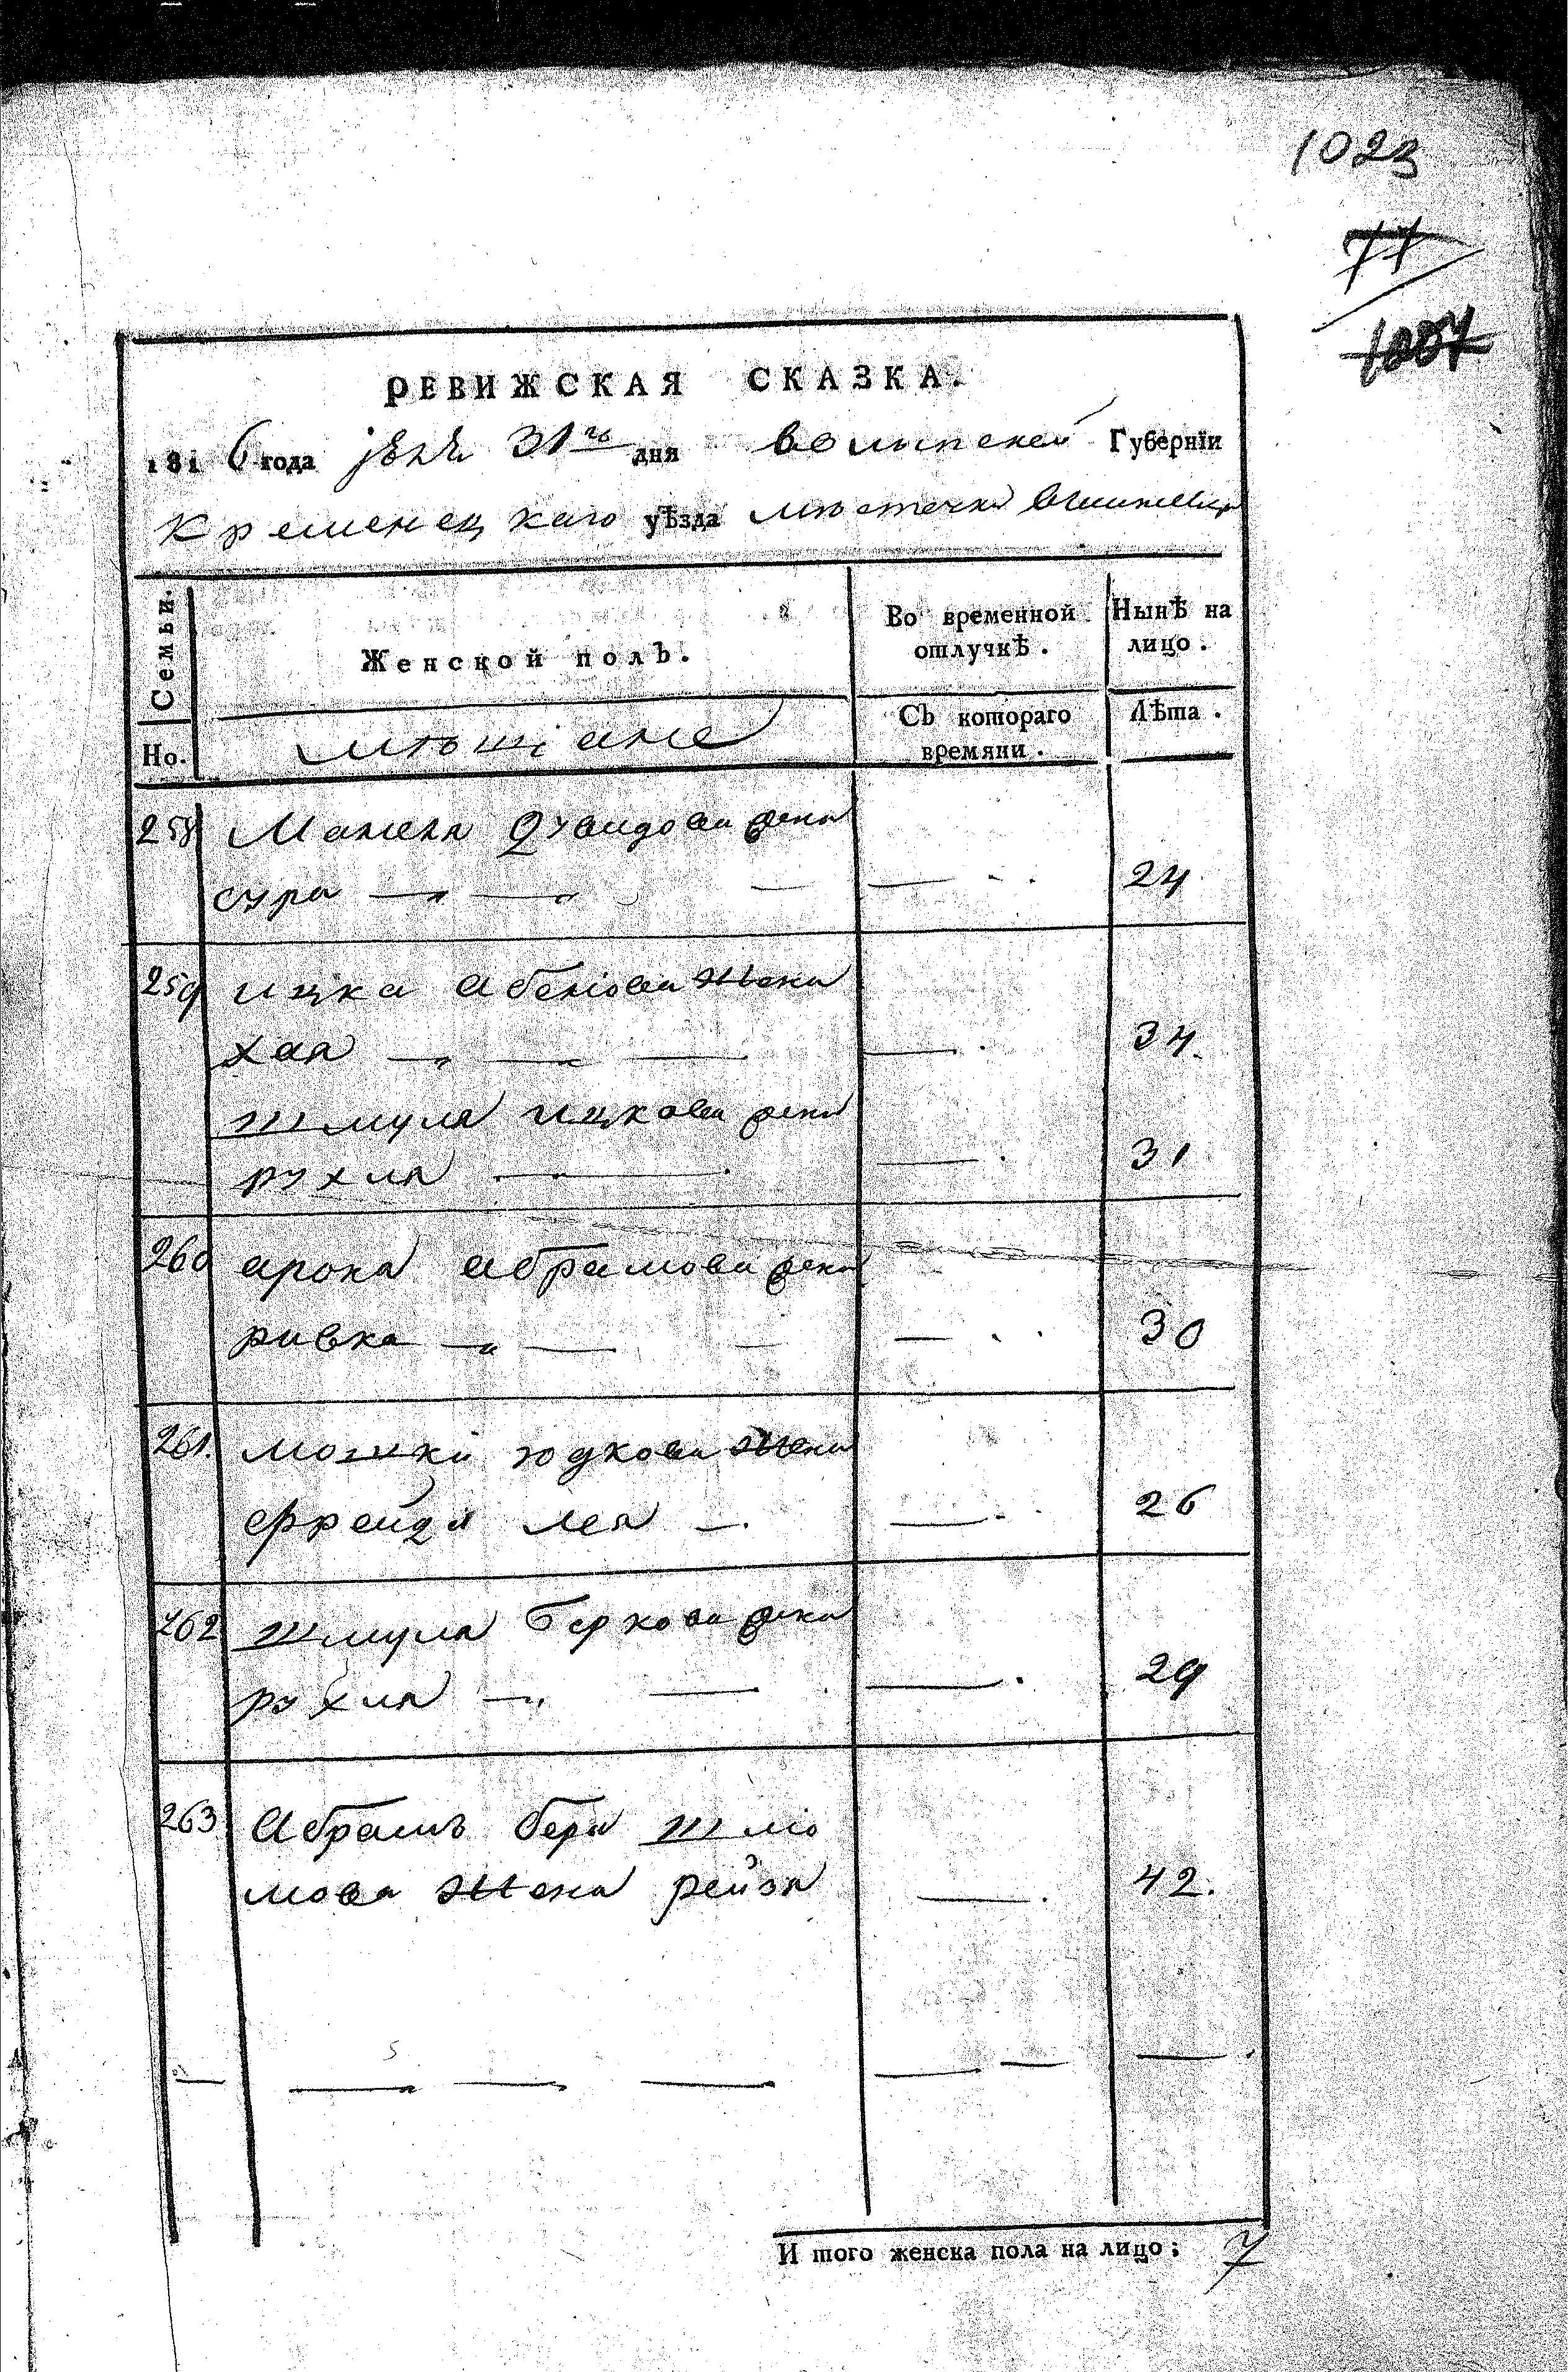 1023
77
1007
РЕВИЖСКАЯ СКАЗКА.
1816 года 31го дня волынской Губернїи
Кременецкаго уѣзда мѣстечка
Семьи.
Женской полъ.
Во временной отлучкѣ.
Нынѣ на лицо.
Но.
мѣщане
Съ котораго времяни.
Лѣта.
258 Манела жена
сура 24
259 ицка жена
хая 34.
шмуля ицкова жена
рухля 31
260 арона абрамова жена
ривка 30
261. мошки юдкова жена
фрейдя лея 26
262 шмуля беркова жена
рухля 29
263 Абрамъ бера шлио
мова жена рейзя 42.
И того женска пола на лицо; 7